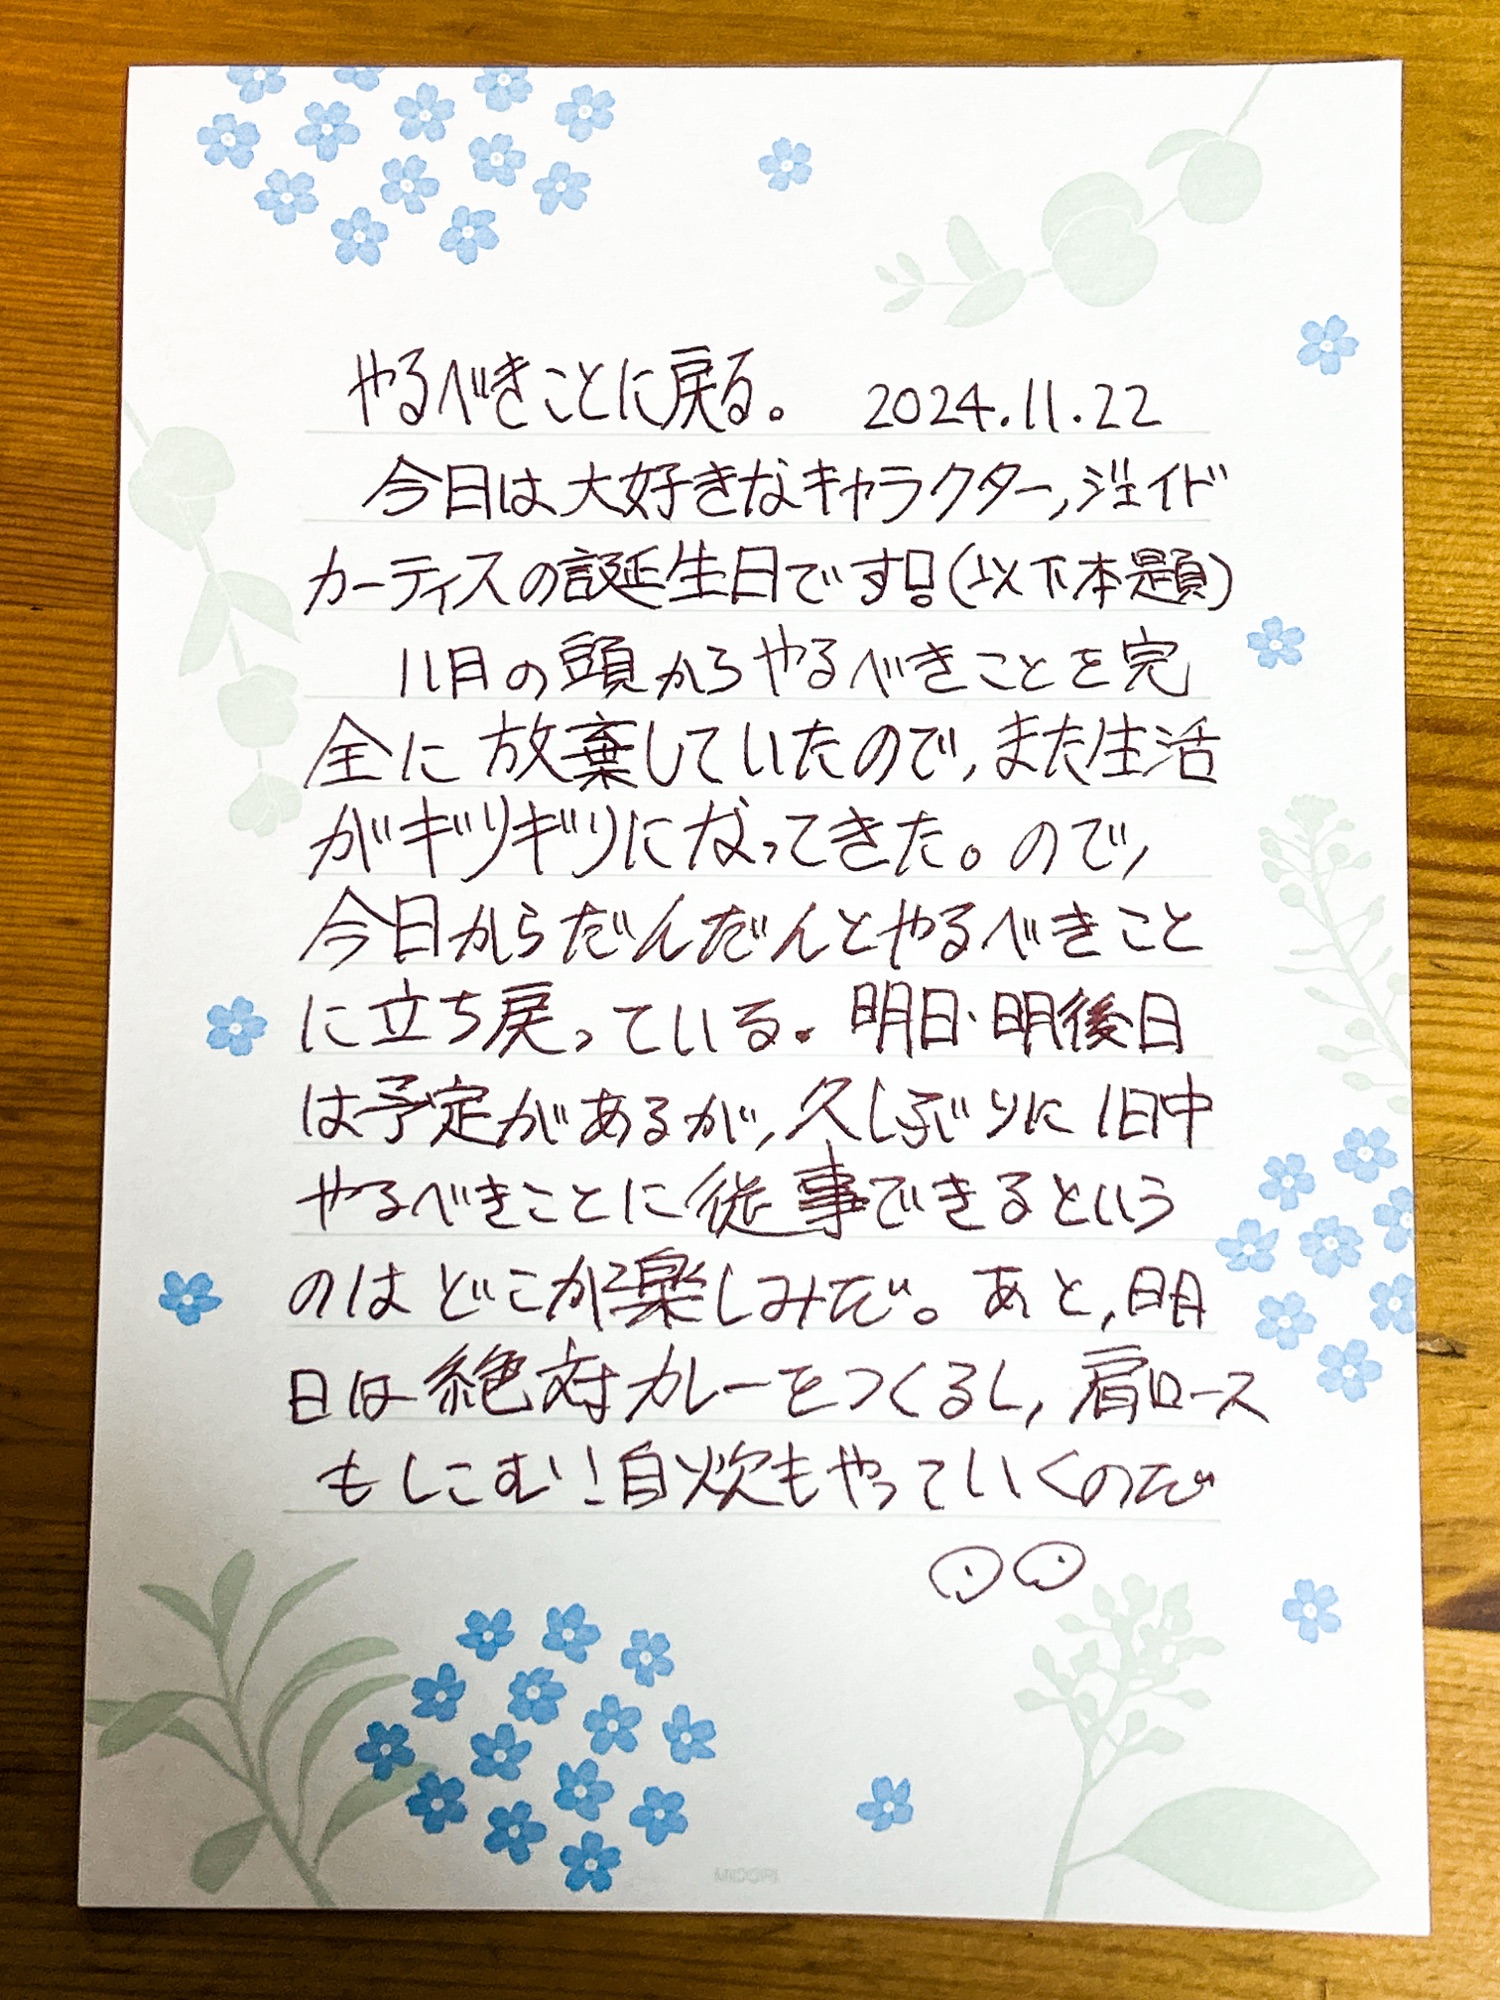 やるべきことに戻る。 2024.11.22
今日は大好きなキャラクター、ジェイド
カーティスの誕生日です!!(以下本題)
11月の頭からやるべきことを完
全に放棄していたので、また生活
がギリギリになってきた。ので、
今日からだんだんとやるべきこと
に立ち戻っている。明日・明後日
は予定があるが、久しぶりに1日中
やるべきことに従事できるという
のはどこか楽しみだ。あと、明
日は絶対カレーをつくるし、肩ロース
もしこむ!自炊もやっていくのだ
MIDORI